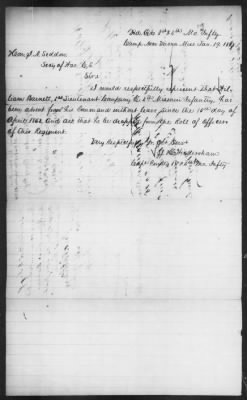 Hd Qrs 1st & 4th Mo Infty
Camp near Miss Jan 19, 1864
Hon J. A. Seddon
Secy of War C.S
Sir:
I would respectfully represent that
liam Barnett, 2nd Lieutenant Company 1st Missouri Infantry, has
been absent from his Command without leave since the 10th day of
April 1863, and ask that he be dropped from the Roll of Officers
of this Regiment.
Very Respectfully Yr obt Servt
Capt Comdg 1st & 4th Mo Infty